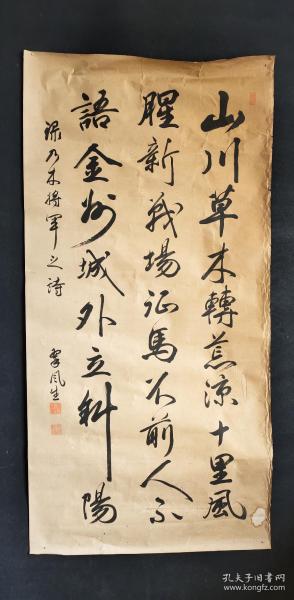 山川草木轉荒涼十里風
腥新戰場征馬不前人不
語金州城外立斜陽
錄乃木將軍之詩
風生
孔夫子旧书网
book.kongfz.com